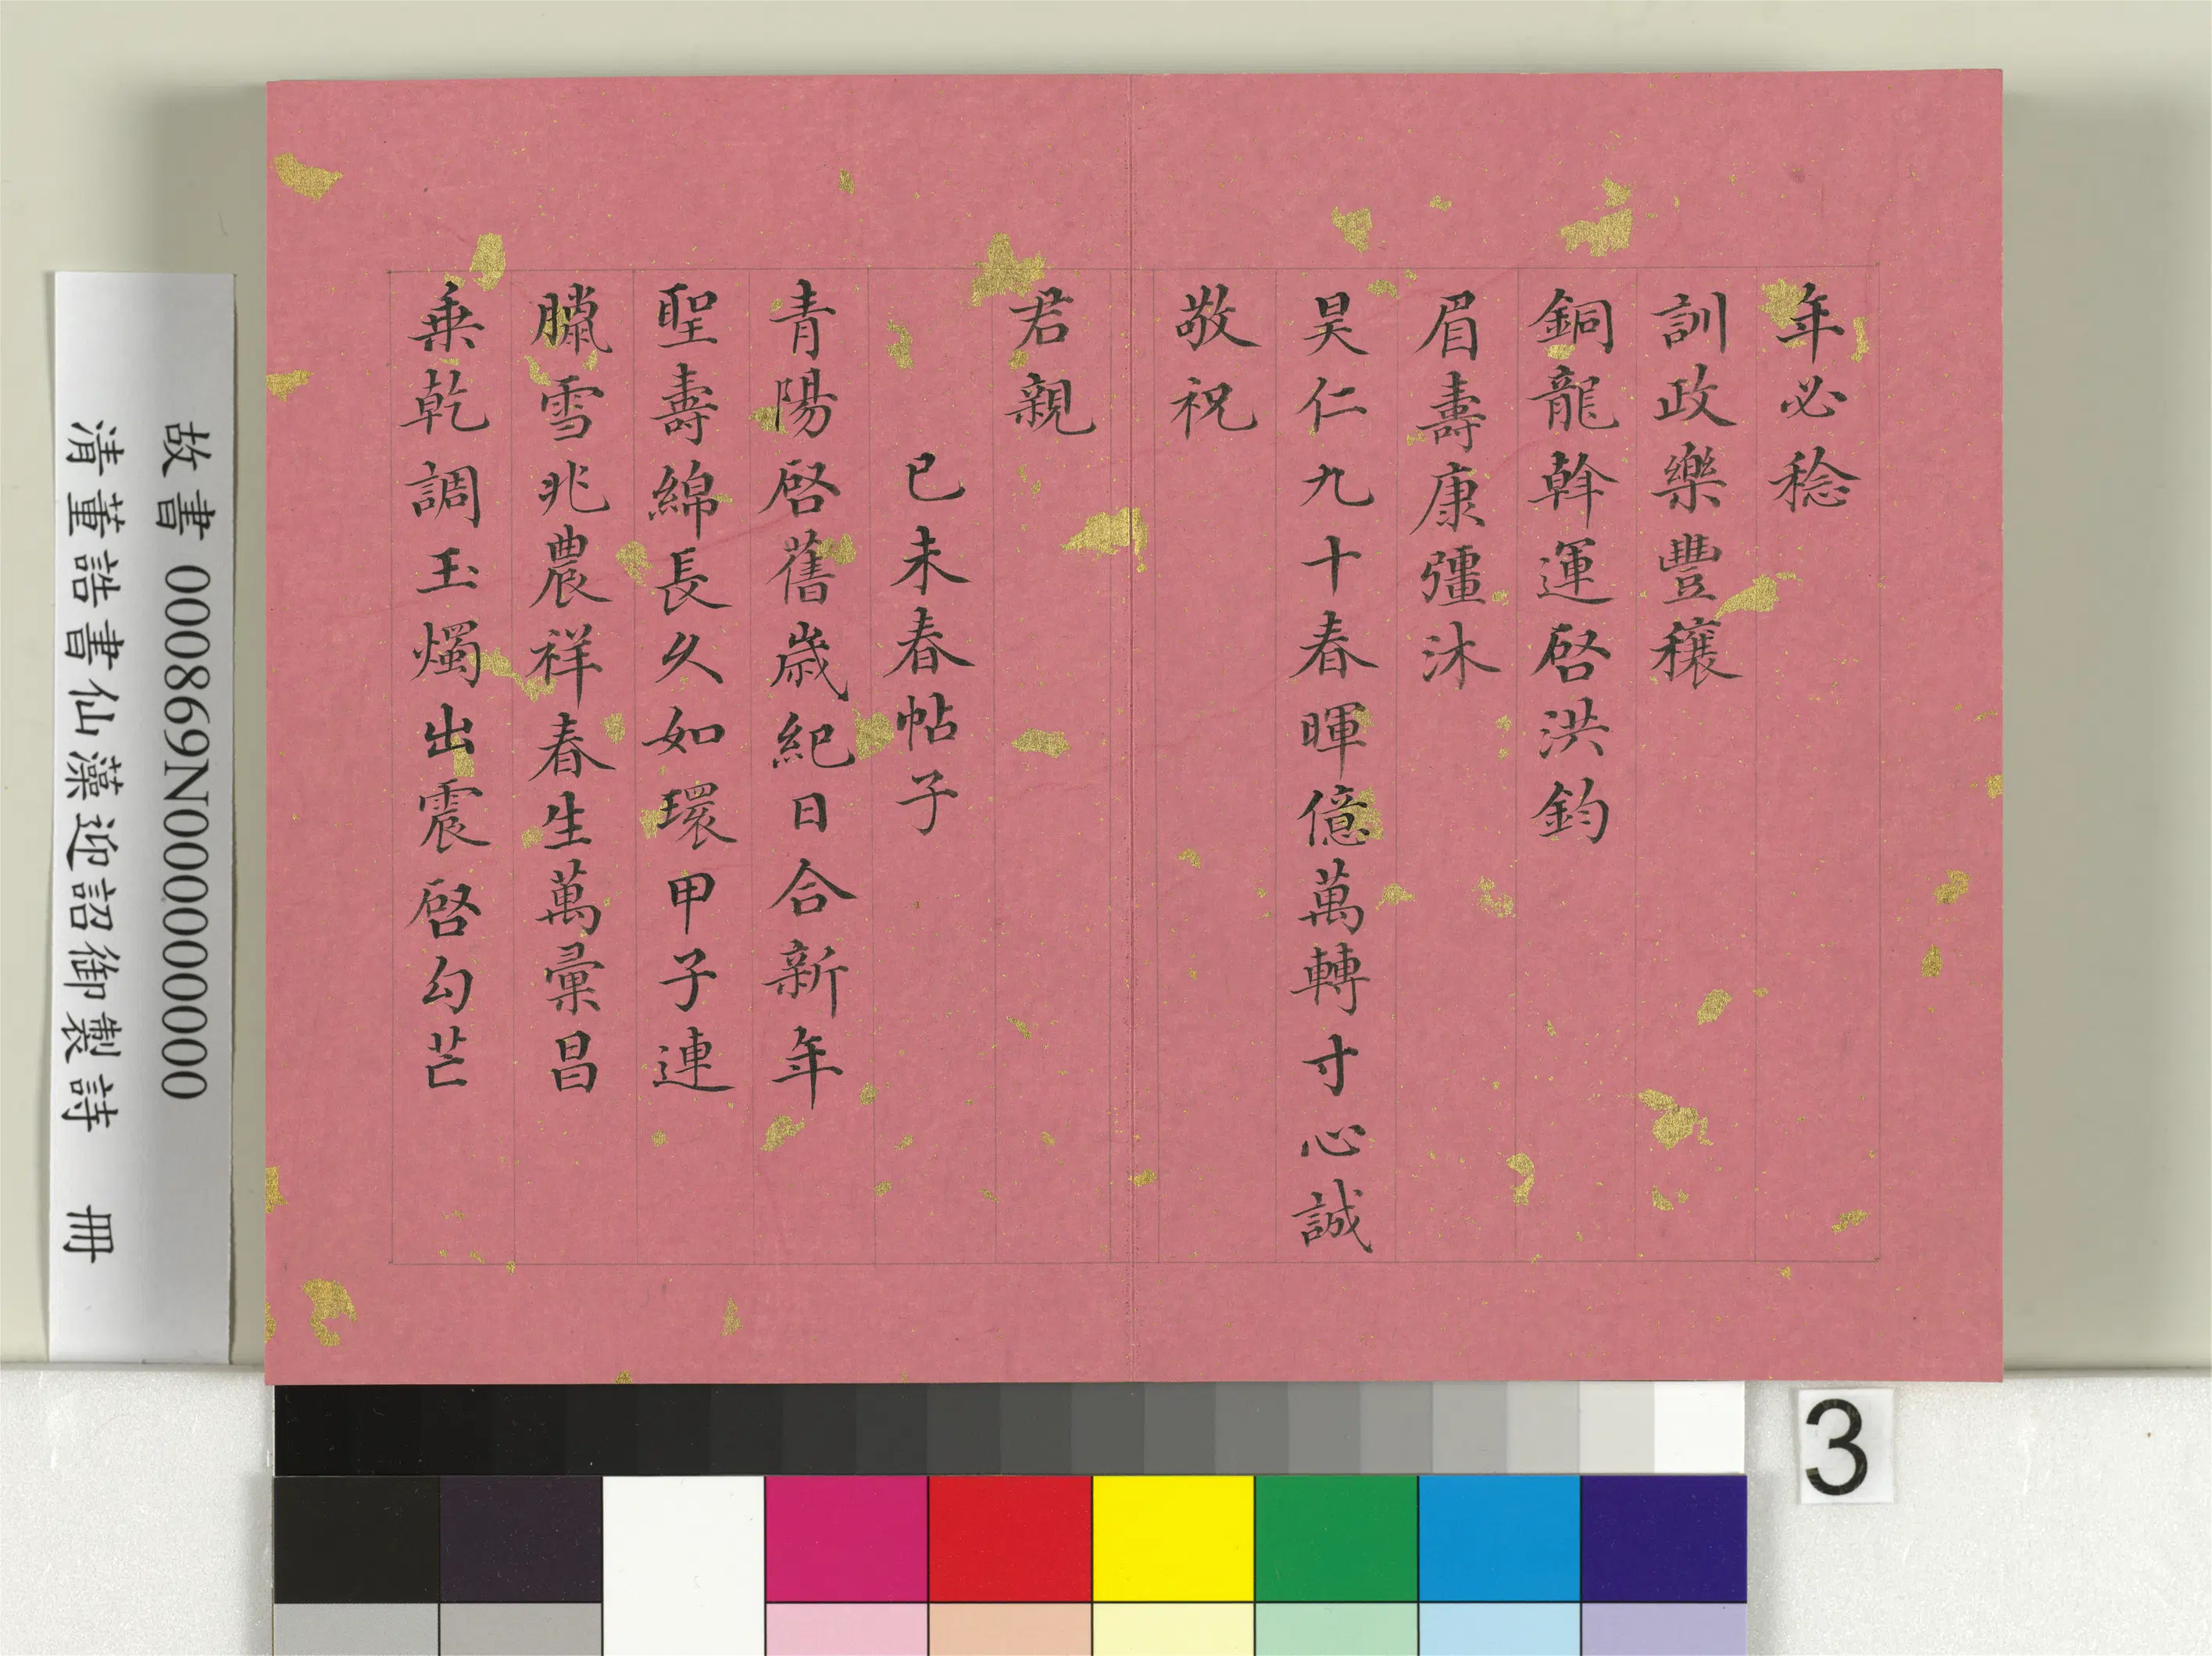 年必稔
訓政樂豐穰
銅龍斡運啓洪鈞
眉壽康彊沐
昊仁九十春暉億萬轉寸心誠
敬祝
君親
已未春帖子
青陽啓舊歲紀日合新年
聖壽綿長久如環甲子連
臘雪兆農祥春生萬彙昌
乗乾調玉燭出震啓勾芒
故書 000869N000000000
清董誥書仙藻迎詔御製詩 冊
3